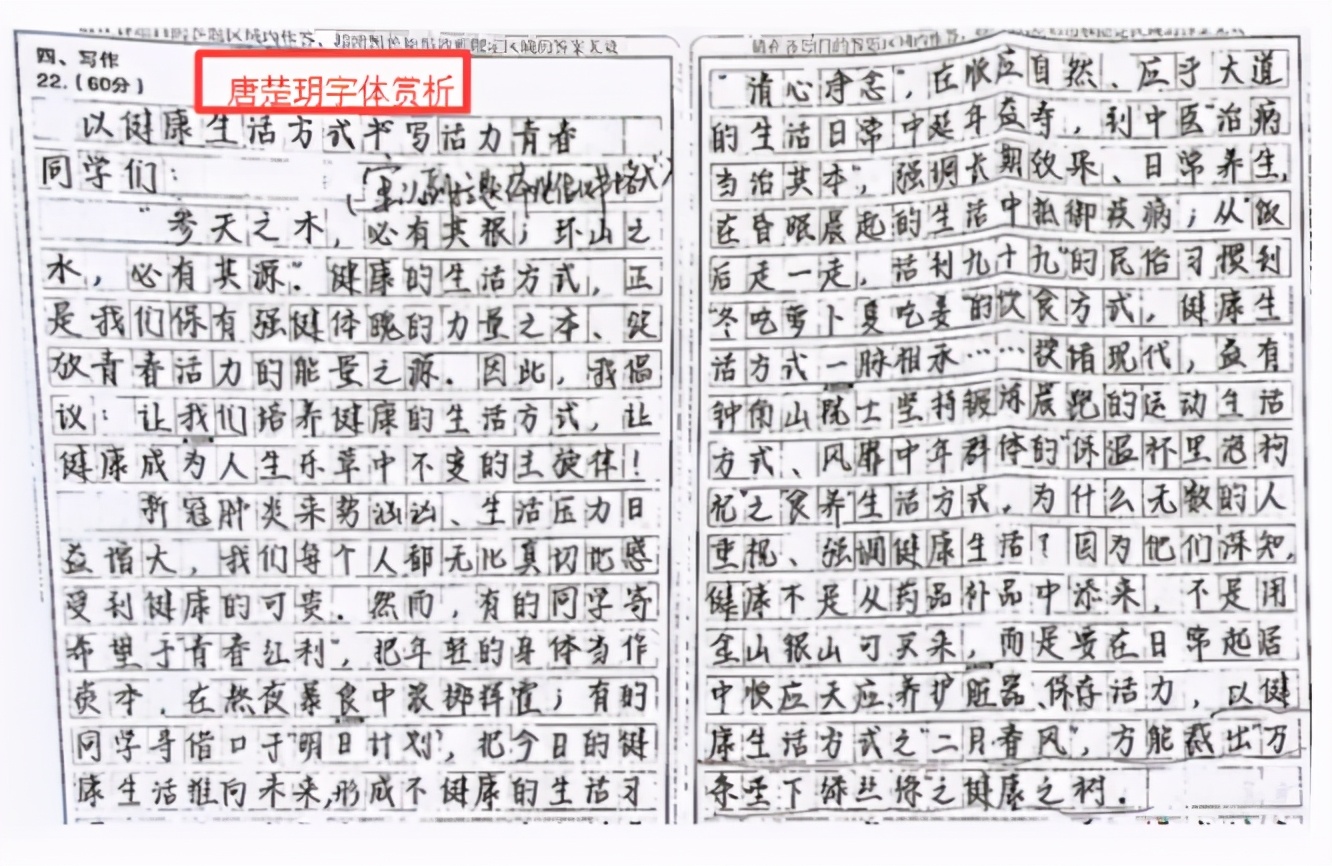 四、写作
22.（60分）
唐楚玥字体赏析
以健康生活方式书写活力青春
同学们：
"参天之木，必有其根；环山之
水，必有其源"。健康的生活方式，正
是我们保有强健体魄的力量之本、绽
放青春活力的能量之源。因此，我倡
议：让我们培养健康的生活方式，让
健康成为人生乐章中不变的主旋律！
新冠肺炎来势汹汹、生活压力日
益增大，我们每个人都无比真切地感
受到健康的可贵。然而，有的同学寄
希望于"青春红利"，把年轻的身体当作
资本，在熬夜暴食中浪掷挥霍；有的
同学寻借口于"明日计划"，把今日的健
康生活推向未来，形成不健康的生活习
"清心净念"，在顺应自然、应于大道
的生活日常中延年益寿，到中医"治病
当治其本"，强调长期效果、日常养生，
在昏眠晨起的生活中抵御疾病；从"饭
后走一走，活到九十九"的民俗习惯到
"冬吃萝卜夏吃姜"的饮食方式，健康生
活方式一脉相承……放诸现代，益有
钟南山院士坚持锻炼晨跑的运动生活
方式、风靡中年群体的"保温杯里泡枸
杞"之"食养"生活方式，为什么无数的人
重视、强调健康生活？因为他们深知，
健康不是从药品补品中添来，不是用
金山银山可买来，而是要在日常起居
中顺应天应、养护脏器、保存活力，以健
康生活方式之"二月春风"，方能裁出"万
条垂下绿丝绦"之健康之树。